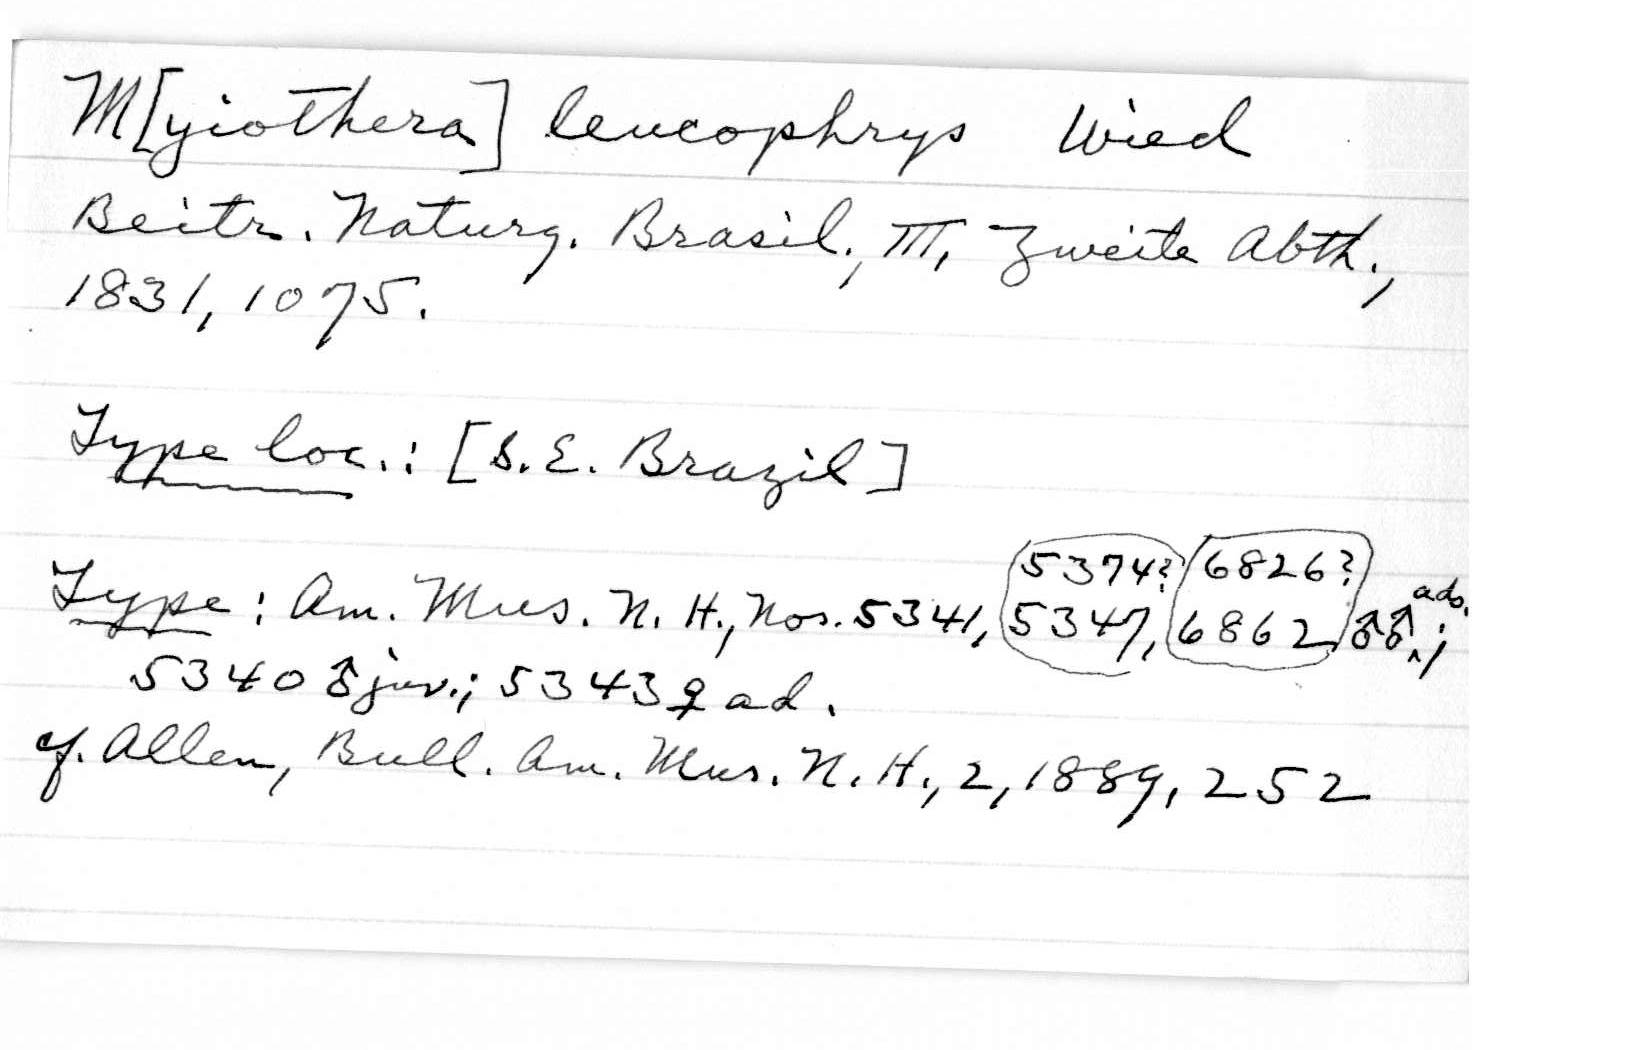 M[yiothera] leucophrys Wied
Beitr. Naturg. Brasil., III, Zweite Abth.,
1831, 1075.
Type loc.: [S.E. Brazil]
5374? 6826?
Type: Am. Mus. N. H., Nos. 5341, 5347, 6862 ♂♂ ads.;
5340 ♂ juv.; 5343 ♀ ad.
cf. Allen, Bull. Am. Mus. N. H., 2, 1889, 252